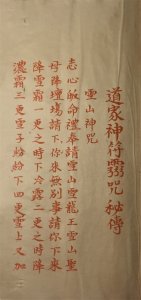 道家神符靈咒 秘傳
雪山神咒
志心皈命禮奉請雪山雪龍王雪山聖
母降壇場請下你來無別事請你下來
降雪霜一更之時下冷霧二更之時降
濃霜三更雪子紛紛下四更雪上又加